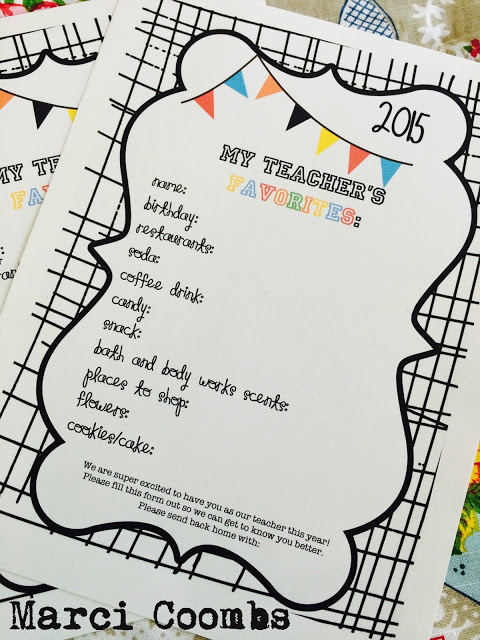 2015
MY TEACHER'S
FAVORITES:
name:
birthday:
restaurants:
soda:
coffee drink:
candy:
snack:
bath and body works scents:
places to shop:
flowers:
cookies/cake:
We are super excited to have you as our teacher this year!
Please fill this form out so we can get to know you better.
Please send back home with:
MY TEA
FA
Marci Coombs